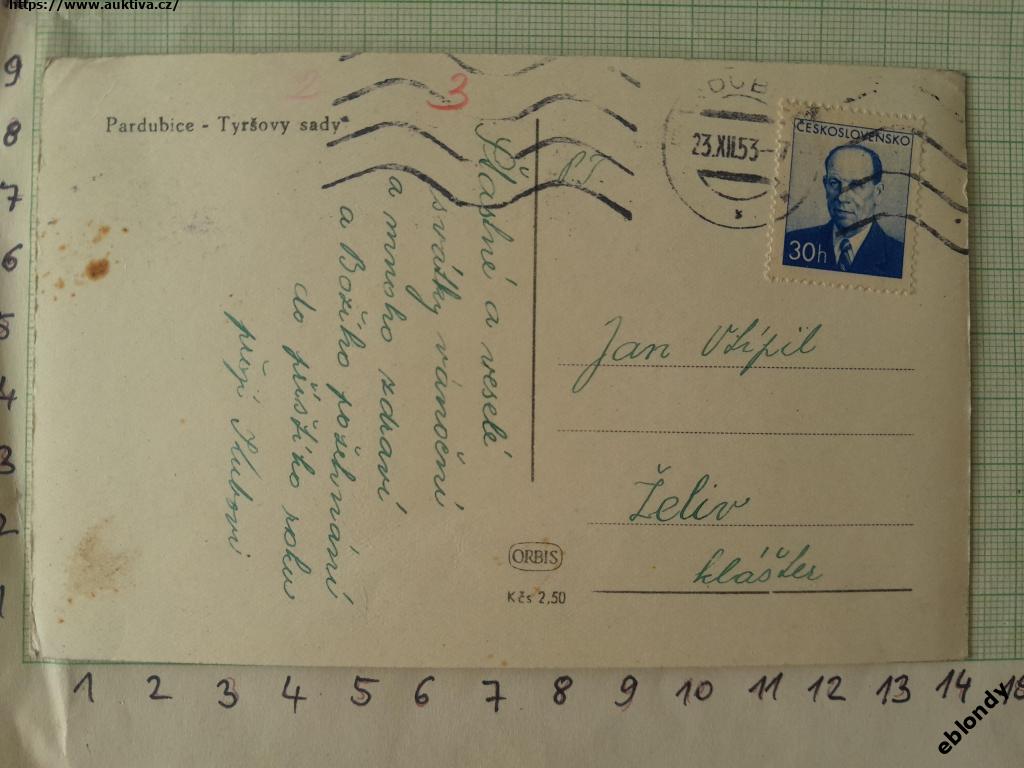 https://www.auktiva.cz/
Pardubice - Tyršovy sady
2
3
Šťastné a veselé
svátky vánoční
a mnoho zdraví
a Božího požehnání
do příštího roku
přejí
DUB
23.XII.53-
ČESKOSLOVENSKO
30h
Jan
Želiv
klášter
ORBIS
Kčs 2,50
9
8
7
6
5
4
3
2
1
1 2 3 4 5 6 7 8 9 10 11 12 13 14 15
eblondy